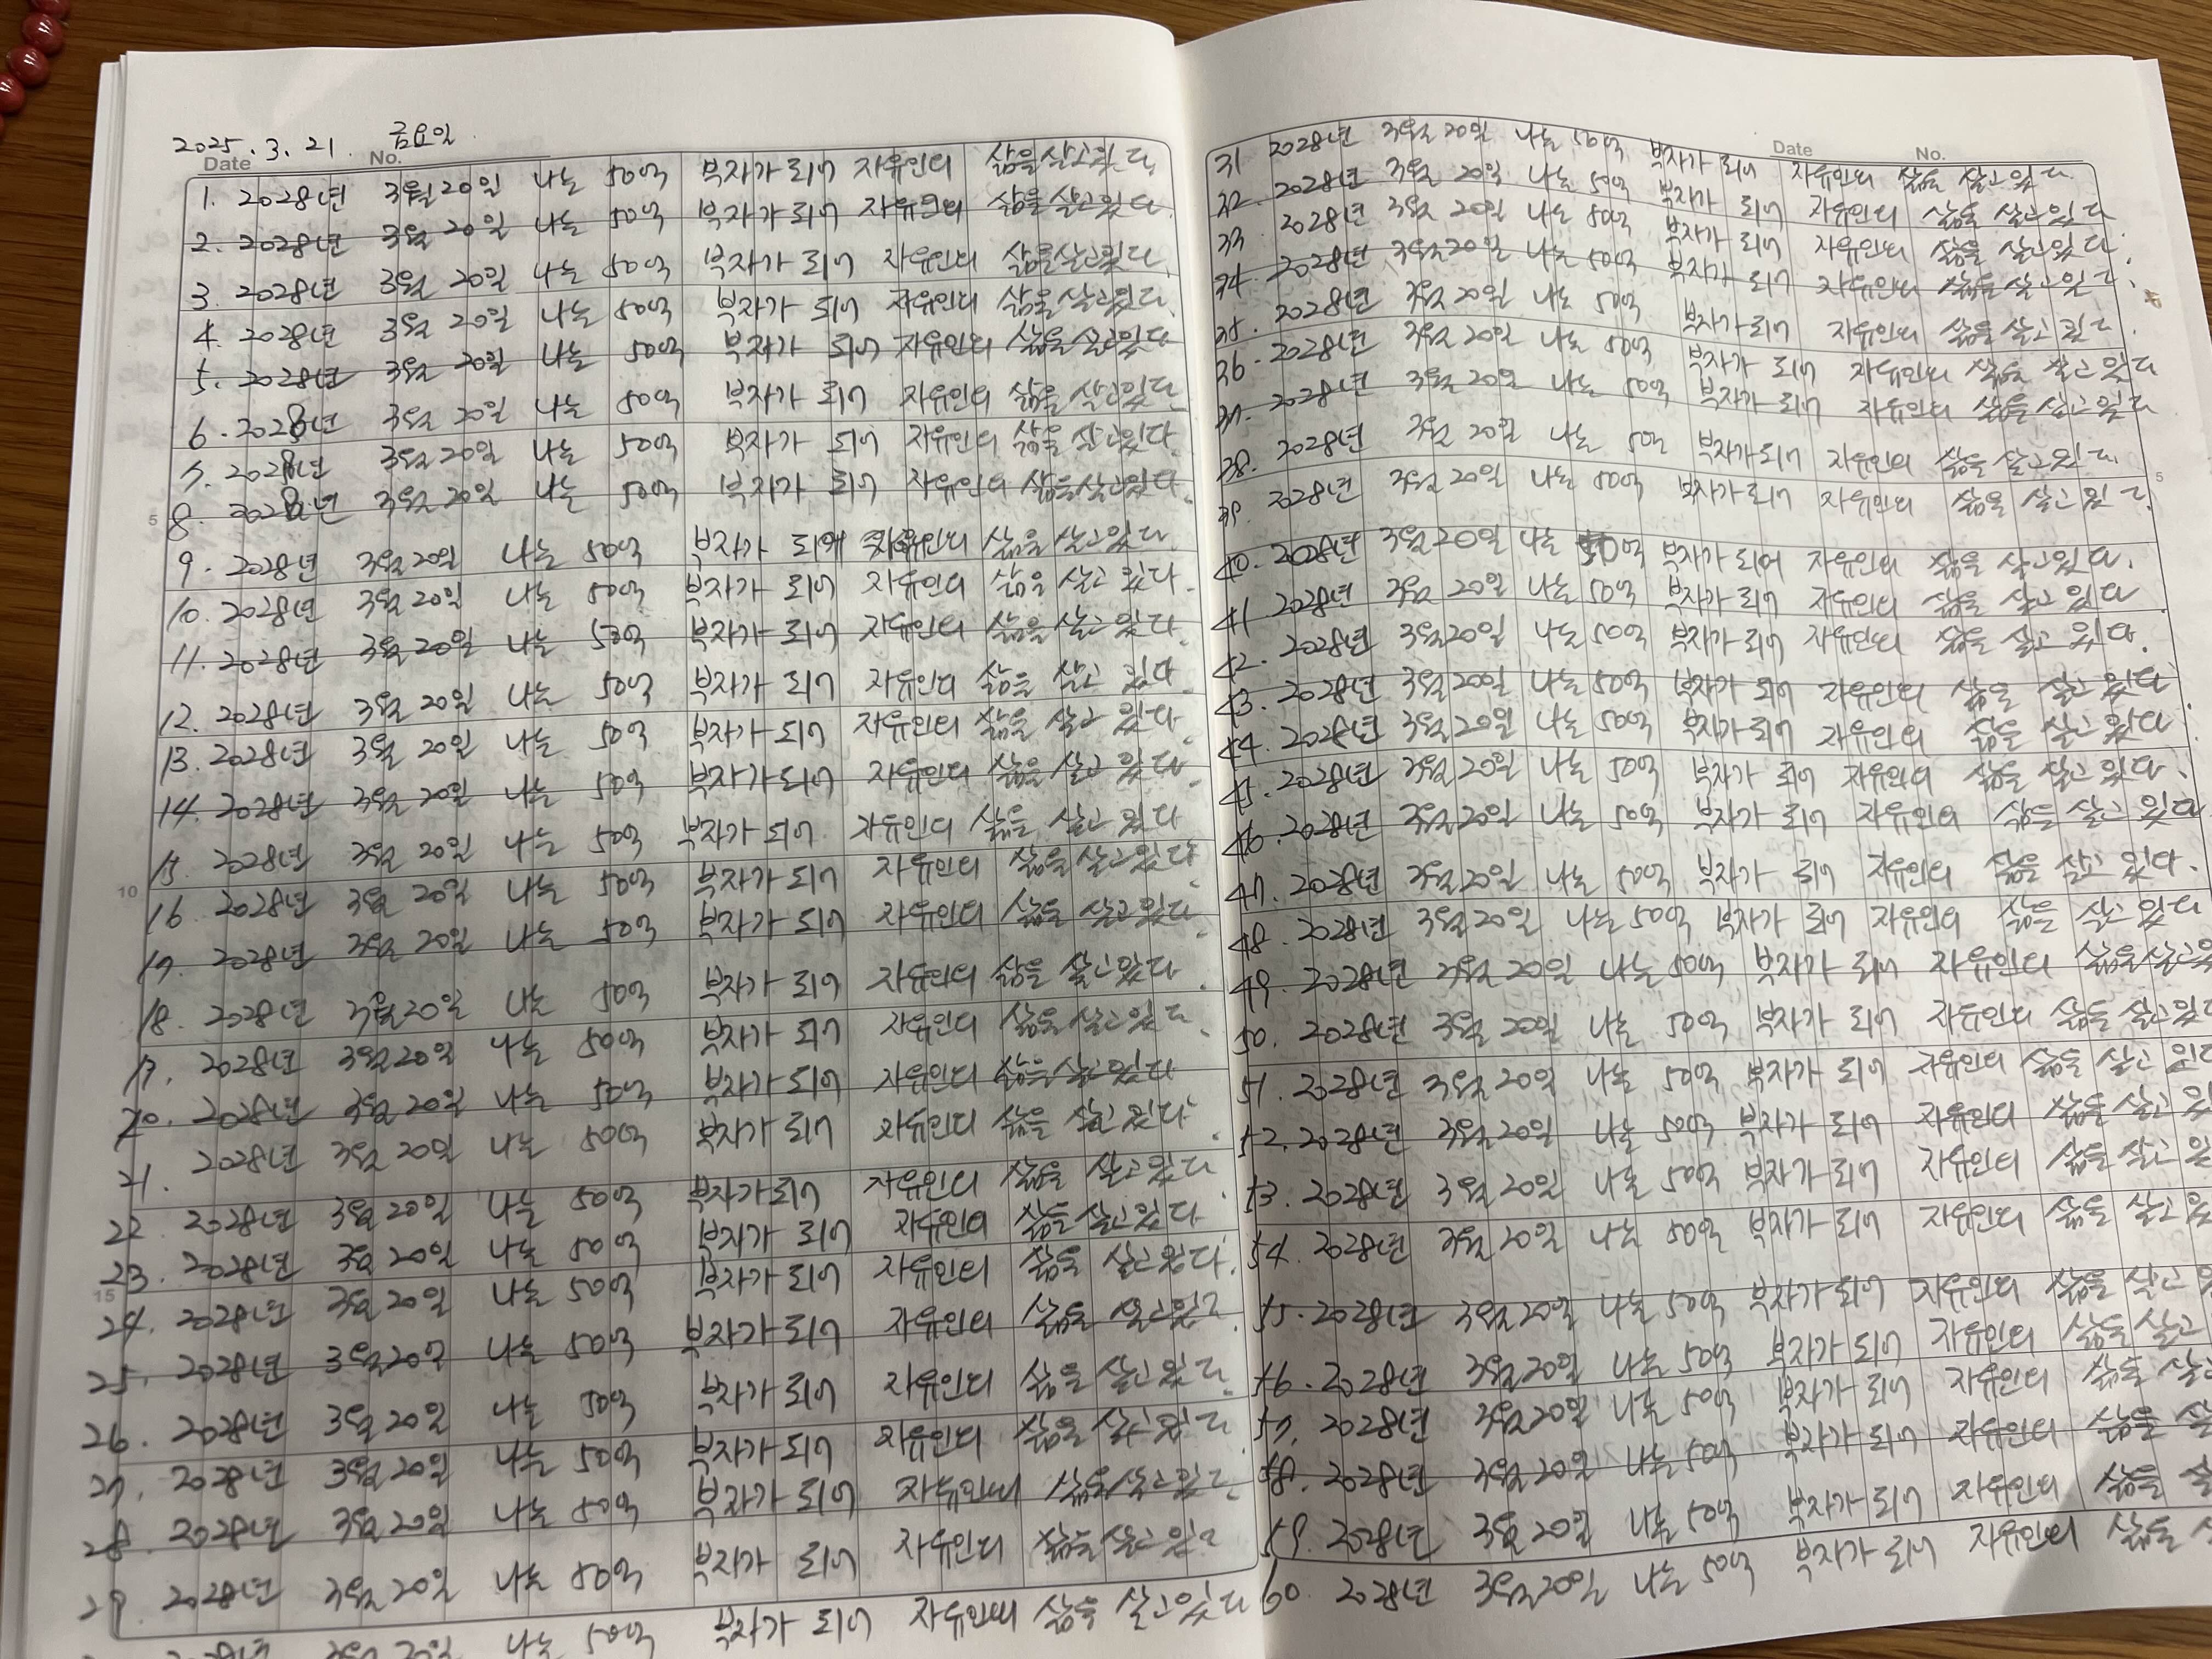 2025.3.21. 금요일
Date No.
1. 2028년 3월 20일 나는 50억 부자가 되어 자유인의 삶을 살고있다.
2. 2028년 3월 20일 나는 50억 부자가 되어 자유인의 삶을 살고있다.
3. 2028년 3월 20일 나는 50억 부자가 되어 자유인의 삶을 살고있다.
4. 2028년 3월 20일 나는 50억 부자가 되어 자유인의 삶을 살고있다.
5. 2028년 3월 20일 나는 50억 부자가 되어 자유인의 삶을 살고있다
6. 2028년 3월 20일 나는 50억 부자가 되어 자유인의 삶을 살고있다
7. 2028년 3월 20일 나는 50억 부자가 되어 자유인의 삶을 살고있다.
5
8. 2028년 3월 20일 나는 50억 부자가 되어 자유인의 삶을 살고있다.
9. 2028년 3월 20일 나는 50억 부자가 되어 자유인의 삶을 살고있다.
10. 2028년 3월 20일 나는 50억 부자가 되어 자유인의 삶을 살고 있다.
11. 2028년 3월 20일 나는 50억 부자가 되어 자유인의 삶을 살고 있다.
12. 2028년 3월 20일 나는 50억 부자가 되어 자유인의 삶을 살고 있다.
13. 2028년 3월 20일 나는 50억 부자가 되어 자유인의 삶을 살고 있다.
14. 2028년 3월 20일 나는 50억 부자가 되어 자유인의 삶을 살고 있다.
15. 2028년 3월 20일 나는 50억 부자가 되어 자유인의 삶을 살고 있다
10
16. 2028년 3월 20일 나는 50억 부자가 되어 자유인의 삶을 살고있다.
17. 2028년 3월 20일 나는 50억 부자가 되어 자유인의 삶을 살고있다.
18. 2028년 3월 20일 나는 50억 부자가 되어 자유인의 삶을 살고있다
19. 2028년 3월 20일 나는 50억 부자가 되어 자유인의 삶을 살고있다.
20. 2028년 3월 20일 나는 50억 부자가 되어 자유인의 삶을 살고있다
21. 2028년 3월 20일 나는 50억 부자가 되어 자유인의 삶을 살고 있다.
22. 2028년 3월 20일 나는 50억 부자가 되어 자유인의 삶을 살고있다.
23. 2028년 3월 20일 나는 50억 부자가 되어 자유인의 삶을 살고있다
15
24. 2028년 3월 20일 나는 50억 부자가 되어 자유인의 삶을 살고있다.
25. 2028년 3월 20일 나는 50억 부자가 되어 자유인의 삶을 살고있다.
26. 2028년 3월 20일 나는 50억 부자가 되어 자유인의 삶을 살고있다.
27. 2028년 3월 20일 나는 50억 부자가 되어 자유인의 삶을 살고있다
28. 2028년 3월 20일 나는 50억 부자가 되어 자유인의 삶을 살고있다
29. 2028년 3월 20일 나는 50억 부자가 되어 자유인의 삶을 살고있다
2028년 3월 20일 나는 50억 부자가 되어 자유인의 삶을 살고있다
Date No.
31 2028년 3월 20일 나는 50억 부자가 되어 자유인의 삶을 살고있다.
32. 2028년 3월 20일 나는 50억 부자가 되어 자유인의 삶을 살고있다
33 2028년 3월 20일 나는 50억 부자가 되어 자유인의 삶을 살고있다.
34. 2028년 3월 20일 나는 50억 부자가 되어 자유인의 삶을 살고있다.
35. 2028년 3월 20일 나는 50억 부자가 되어 자유인의 삶을 살고있다.
36. 2028년 3월 20일 나는 50억 부자가 되어 자유인의 삶을 살고있다
37. 2028년 3월 20일 나는 50억 부자가 되어 자유인의 삶을 살고있다
38. 2028년 3월 20일 나는 50억 부자가 되어 자유인의 삶을 살고있다.
5
39. 2028년 3월 20일 나는 50억 부자가 되어 자유인의 삶을 살고있다.
40. 2028년 3월 20일 나는 50억 부자가 되어 자유인의 삶을 살고있다.
41 2028년 3월 20일 나는 50억 부자가 되어 자유인의 삶을 살고 있다
42. 2028년 3월 20일 나는 50억 부자가 되어 자유인의 삶을 살고 있다.
43. 2028년 3월 20일 나는 50억 부자가 되어 자유인의 삶을 살고 있다
44. 2028년 3월 20일 나는 50억 부자가 되어 자유인의 삶을 살고 있다
45. 2028년 3월 20일 나는 50억 부자가 되어 자유인의 삶을 살고 있다.
46. 2028년 3월 20일 나는 50억 부자가 되어 자유인의 삶을 살고 있다
47. 2028년 3월 20일 나는 50억 부자가 되어 자유인의 삶을 살고 있다.
48. 2028년 3월 20일 나는 50억 부자가 되어 자유인의 삶을 살고 있다
49. 2028년 3월 20일 나는 50억 부자가 되어 자유인의 삶을 살고있
50. 2028년 3월 20일 나는 50억 부자가 되어 자유인의 삶을 살고있다
51. 2028년 3월 20일 나는 50억 부자가 되어 자유인의 삶을 살고 있다
52. 2028년 3월 20일 나는 50억 부자가 되어 자유인의 삶을 살고 있
53. 2028년 3월 20일 나는 50억 부자가 되어 자유인의 삶을 살고 있
54. 2028년 3월 20일 나는 50억 부자가 되어 자유인의 삶을 살고 있
55. 2028년 3월 20일 나는 50억 부자가 되어 자유인의 삶을 살고
56. 2028년 3월 20일 나는 50억 부자가 되어 자유인의 삶을 살고
57. 2028년 3월 20일 나는 50억 부자가 되어 자유인의 삶을 살
58. 2028년 3월 20일 나는 50억 부자가 되어 자유인의 삶을 살
59. 2028년 3월 20일 나는 50억 부자가 되어 자유인의 삶을 살
60. 2028년 3월 20일 나는 50억 부자가 되어 자유인의 삶을